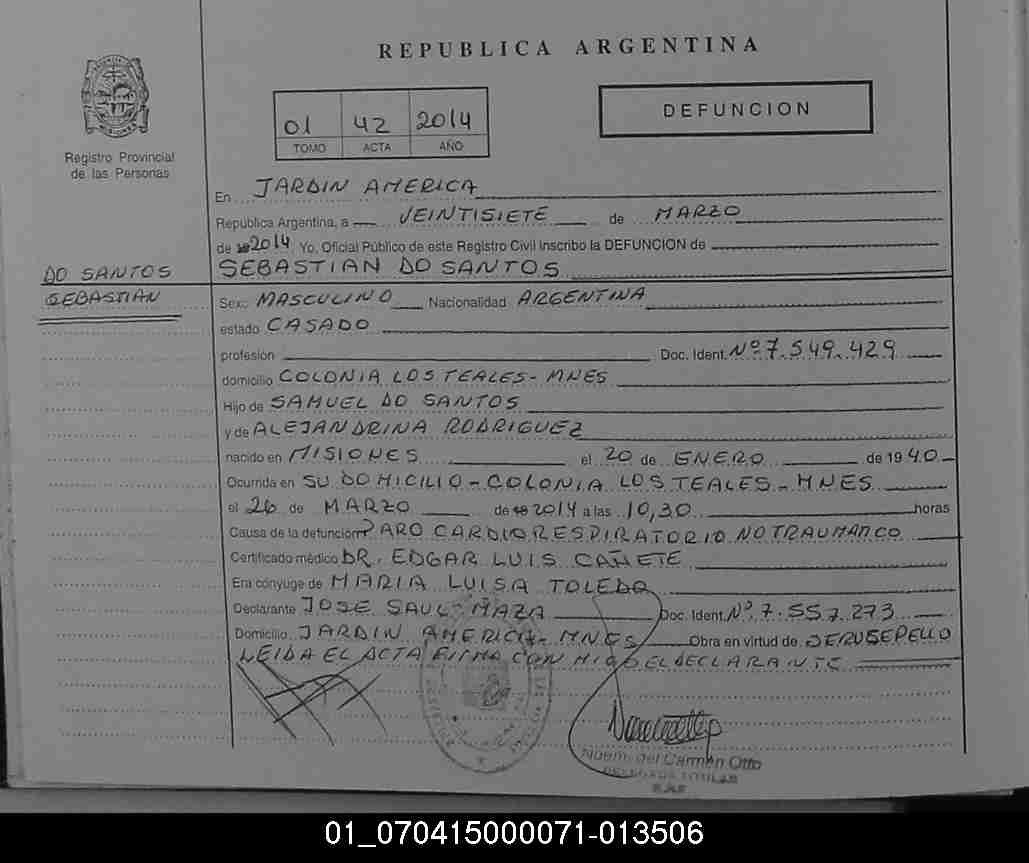 REPUBLICA ARGENTINA
DEFUNCION
01 42 2014
TOMO ACTA AÑO
Registro Provincial
de las Personas
En JARDIN AMERICA
Republica Argentina, a VEINTISIETE de MARZO
de 2014 Yo, Oficial Público de este Registro Civil inscribo la DEFUNCION de
DO SANTOS
SEBASTIAN
SEBASTIAN DO SANTOS
Sexo MASCULINO Nacionalidad ARGENTINA
estado CASADO
profesión Doc. Ident. Nº 7.549.429
domicilio COLONIA LOS TEALES - MNES
Hijo de SAMUEL DO SANTOS
y de ALEJANDRINA RODRIGUEZ
nacido en MISIONES el 20 de ENERO de 1940
Ocurrida en SU DOMICILIO - COLONIA LOS TEALES - MNES
el 26 de MARZO de 2014 a las 10,30 horas
Causa de la defunción PARO CARDIORESPIRATORIO NO TRAUMATICO
Certificado médico DR. EDGAR LUIS CAÑETE
Era cónyuge de MARIA LUISA TOLEDO
Declarante JOSE SAUL MAZA Doc. Ident. Nº 7.557.273
Domicilio JARDIN AMERICA - MNES Obra en virtud de
LEIDA EL ACTA FIRMA CONMIGO EL DECLARANTE
Noemi del Carmen Otto
DELEGADA TITULAR
01_070415000071-013506